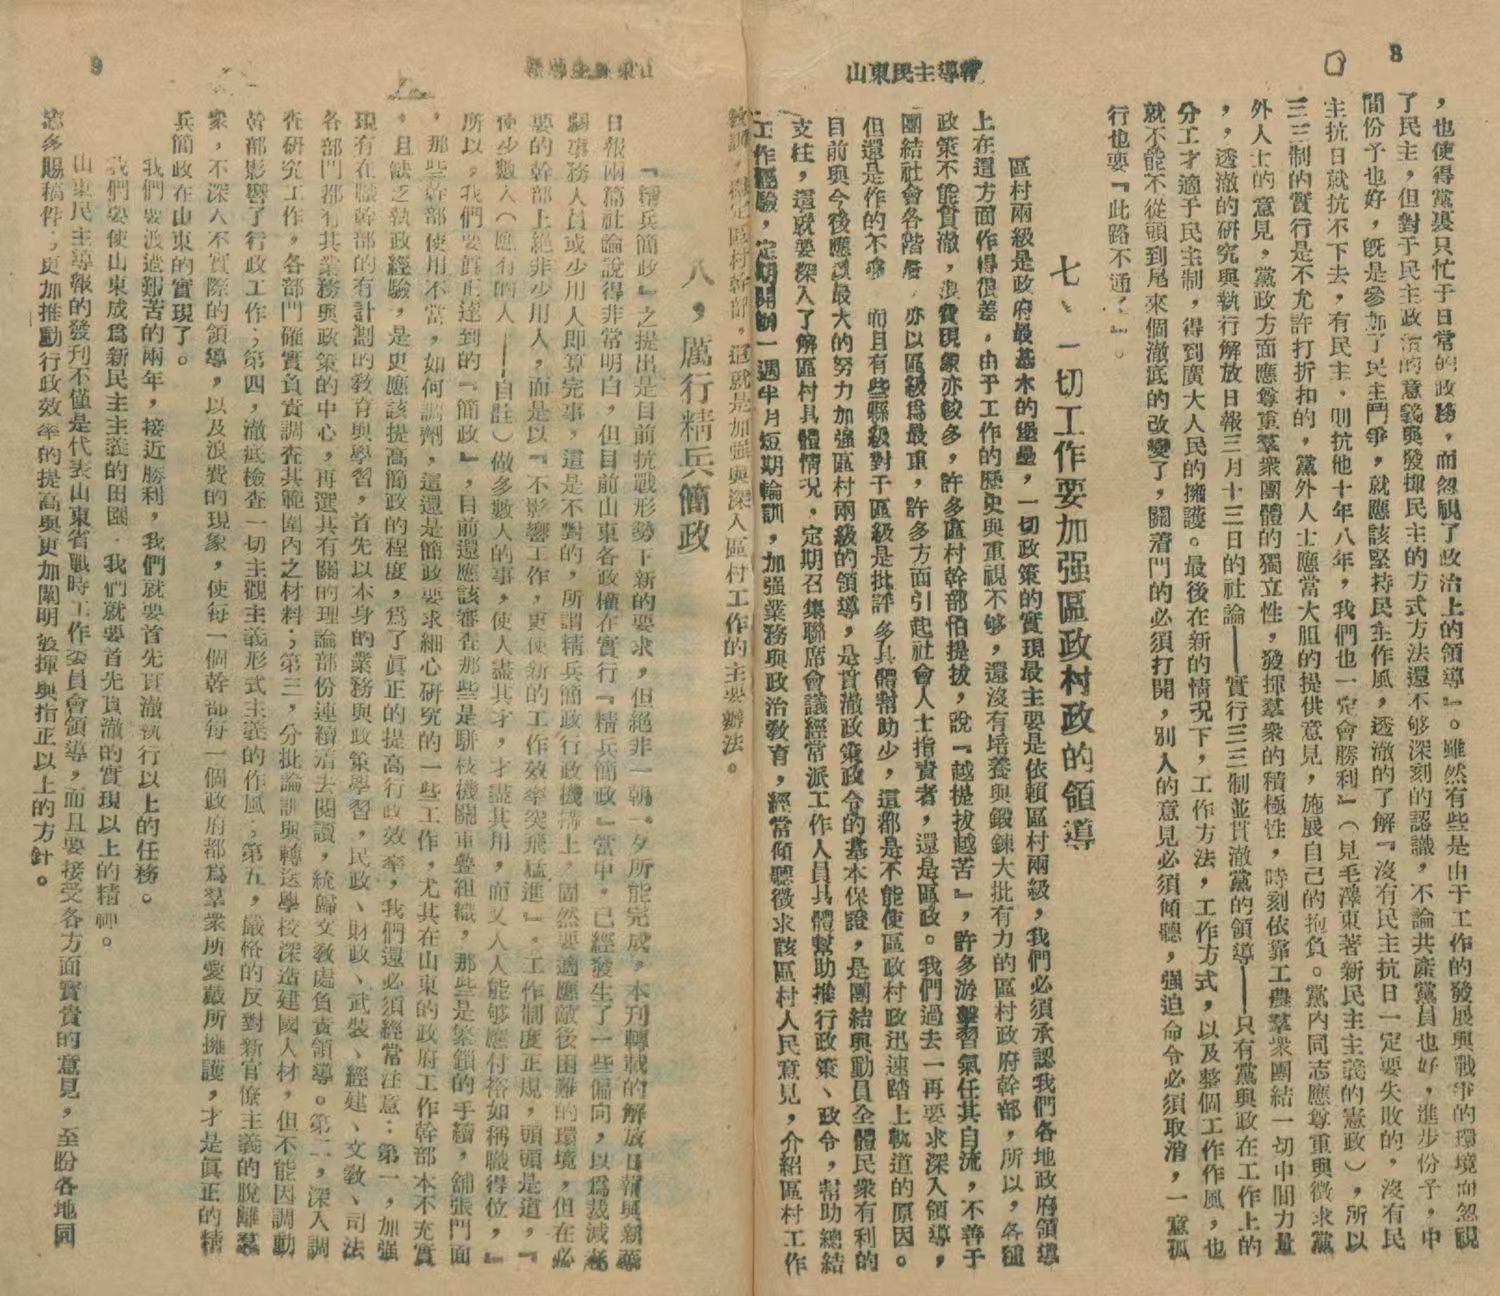 8
山東民主導報
，也使得黨裏只忙于日常的政務，而忽視了政治上的領導』。雖然有些是由于工作的發展與戰爭的環境而忽視
了民主，但對于民主政治的意義與發揮民主的方式方法還不够深刻的認識，不論共產黨員也好，進步份子，中
間份子也好，既是參加了民主鬥爭，就應該堅持民主作風，透澈的了解『沒有民主抗日一定要失敗的，沒有民
主抗日就抗不下去，有民主，則抗他十年八年，我們也一定會勝利』（見毛澤東著新民主主義的憲政），所以
三三制的實行是不允許打折扣的，黨外人士應當大胆的提供意見，施展自己的抱負。黨內同志應尊重與徵求黨
外人士的意見，黨政方面應尊重羣衆團體的獨立性，發揮羣衆的積極性，時刻依靠工農羣衆團結一切中間力量
，透澈的研究與執行解放日報三月十三日的社論——實行三三制並貫澈黨的領導——只有黨與政在工作上的
分工才適于民主制，得到廣大人民的擁護。最後在新的情况下，工作方法，工作方式，以及整個工作作風，也
就不能不從頭到尾來個澈底的改變了，關着門的必須打開，別人的意見必須傾聽，强迫命令必須取消，一意孤
行也要『此路不通』。
七、一切工作要加强區政村政的領導
區村兩級是政府最基木的堡壘，一切政策的實現最主要是依賴區村兩級，我們必須承認我們各地政府領導
上在這方面作得很差，由于工作的歷史與重視不够，還沒有培養與鍛鍊大批有力的區村政府幹部，所以，各種
政策不能貫澈，浪費現象亦較多，許多區村幹部怕提拔，說『越提拔越苦』，許多游擊習氣任其自流，不善于
團結社會各階層，亦以區級爲最重，許多方面引起社會人士指責者，還是區政。我們過去一再要求深入領導，
但還是作的不够，而且有些縣級對于區級是批評多具體幫助少，這都是不能使區政村政迅速踏上軌道的原因。
目前與今後應以最大的努力加强區村兩級的領導，是貫澈政策政令的基本保證，是團結與動員全體民衆有利的
支柱，這就要深入了解區村具體情况，定期召集聯席會議經常派工作人員具體幫助推行政策、政令，幫助總結
工作經驗，定期開辦一週半月短期輪訓，加强業務與政治敎育，經常傾聽徵求該區村人民意見，介紹區村工作
敎訓，穩定區村幹部，這就是加强與深入區村工作的主要辦法。
9
山東民主導報
八，厲行精兵簡政
『精兵簡政』之提出是目前抗戰形勢下新的要求，但絕非一朝一夕所能完成，本刊轉載的解放日報與新華
日報兩篇社論說得非常明白，但目前山東各政權在實行『精兵簡政』當中，已經發生了一些偏向，以爲裁減
事務人員或少用人即算完事，這是不對的，所謂精兵簡政行政機構上，固然要適應敵後困難的環境，但在必
要的幹部上絕非少用人，而是以『不影響工作，更使新的工作效率突飛猛進』，工作制度正規，頭頭是道，『
使少數人（應有的人——自註）做多數人的事，使人盡其才，才盡其用，而又人人能够應付裕如稱職得位，』
所以，我們要眞正達到的『簡政』，目前還應該審查那些是駢枝機關重叠組織，那些是繁鎖的手續，舖張門面
，那些幹部使用不當，如何調劑，這還是簡政要求細心研究的一些工作，尤其在山東的政府工作幹部本不充實
，且缺乏執政經驗，是更應該提高簡政的程度，爲了眞正的提高行政效率，我們還必須經常注意：第一，加强
現有在職幹部的有計劃的敎育與學習，首先以本身的業務與政策學習，民政、財政、武裝、經建、文敎、司法
各部門都有其業務與政策的中心，再選其有關的理論部份連續着去閱讀，統歸文敎處負責領導。第二，深入調
查研究工作，各部門確實負責調查其範圍內之材料；第三，分批論訓與轉送學校深造建國人材，但不能因調動
幹部影響了行政工作；第四，澈底檢查一切主觀主義形式主義的作風；第五，嚴格的反對新官僚主義的脫離羣
衆，不深入不實際的領導，以及浪費的現象，使每一個幹部每一個政府都爲羣衆所愛戴所擁護，才是眞正的精
兵簡政在山東的實現了。
我們要渡過艱苦的兩年，接近勝利，我們就要首先貫澈執行以上的任務。
我們要使山東成爲新民主主義的田園，我們就要首先貫澈的實現以上的精神。
山東民主導報的發刊不僅是代表山東省戰時工作委員會領導，而且要接受各方面寳貴的意見，至盼各地同
志多賜稿件，更加推動行政效率的提高與更加闡明發揮與指正以上的方針。